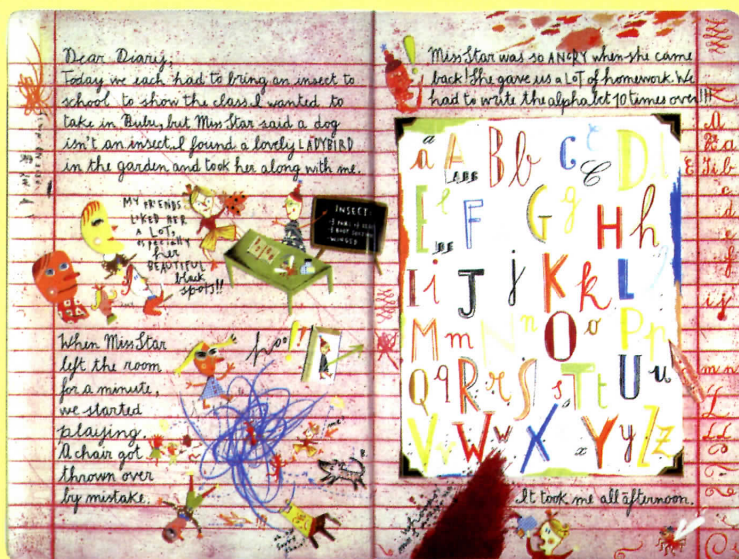 Dear Diary,
Today we each had to bring an insect to
school to show the class. I wanted to
take in Bulu, but Miss Star said a dog
isn't an insect. I found a lovely LADYBIRD
in the garden and took her along with me.
MY FRIENDS
LIKED HER
A LOT,
especially
her
BEAUTIFUL
black
spots!!
INSECT:
WINGED
When Miss Star
left the room
for a minute,
we started
playing.
A chair got
thrown over
by mistake.
me
Miss Star was so ANGRY when she came
back! She gave us a LOT of homework. We
had to write the alphabet 10 times over!!!
a A B b C c C D
E e F G g H h
I i J j K k L
M m N n O o P p
Q q R r S s T t U u
V v W w X x Y y Z z
It took me all afternoon.